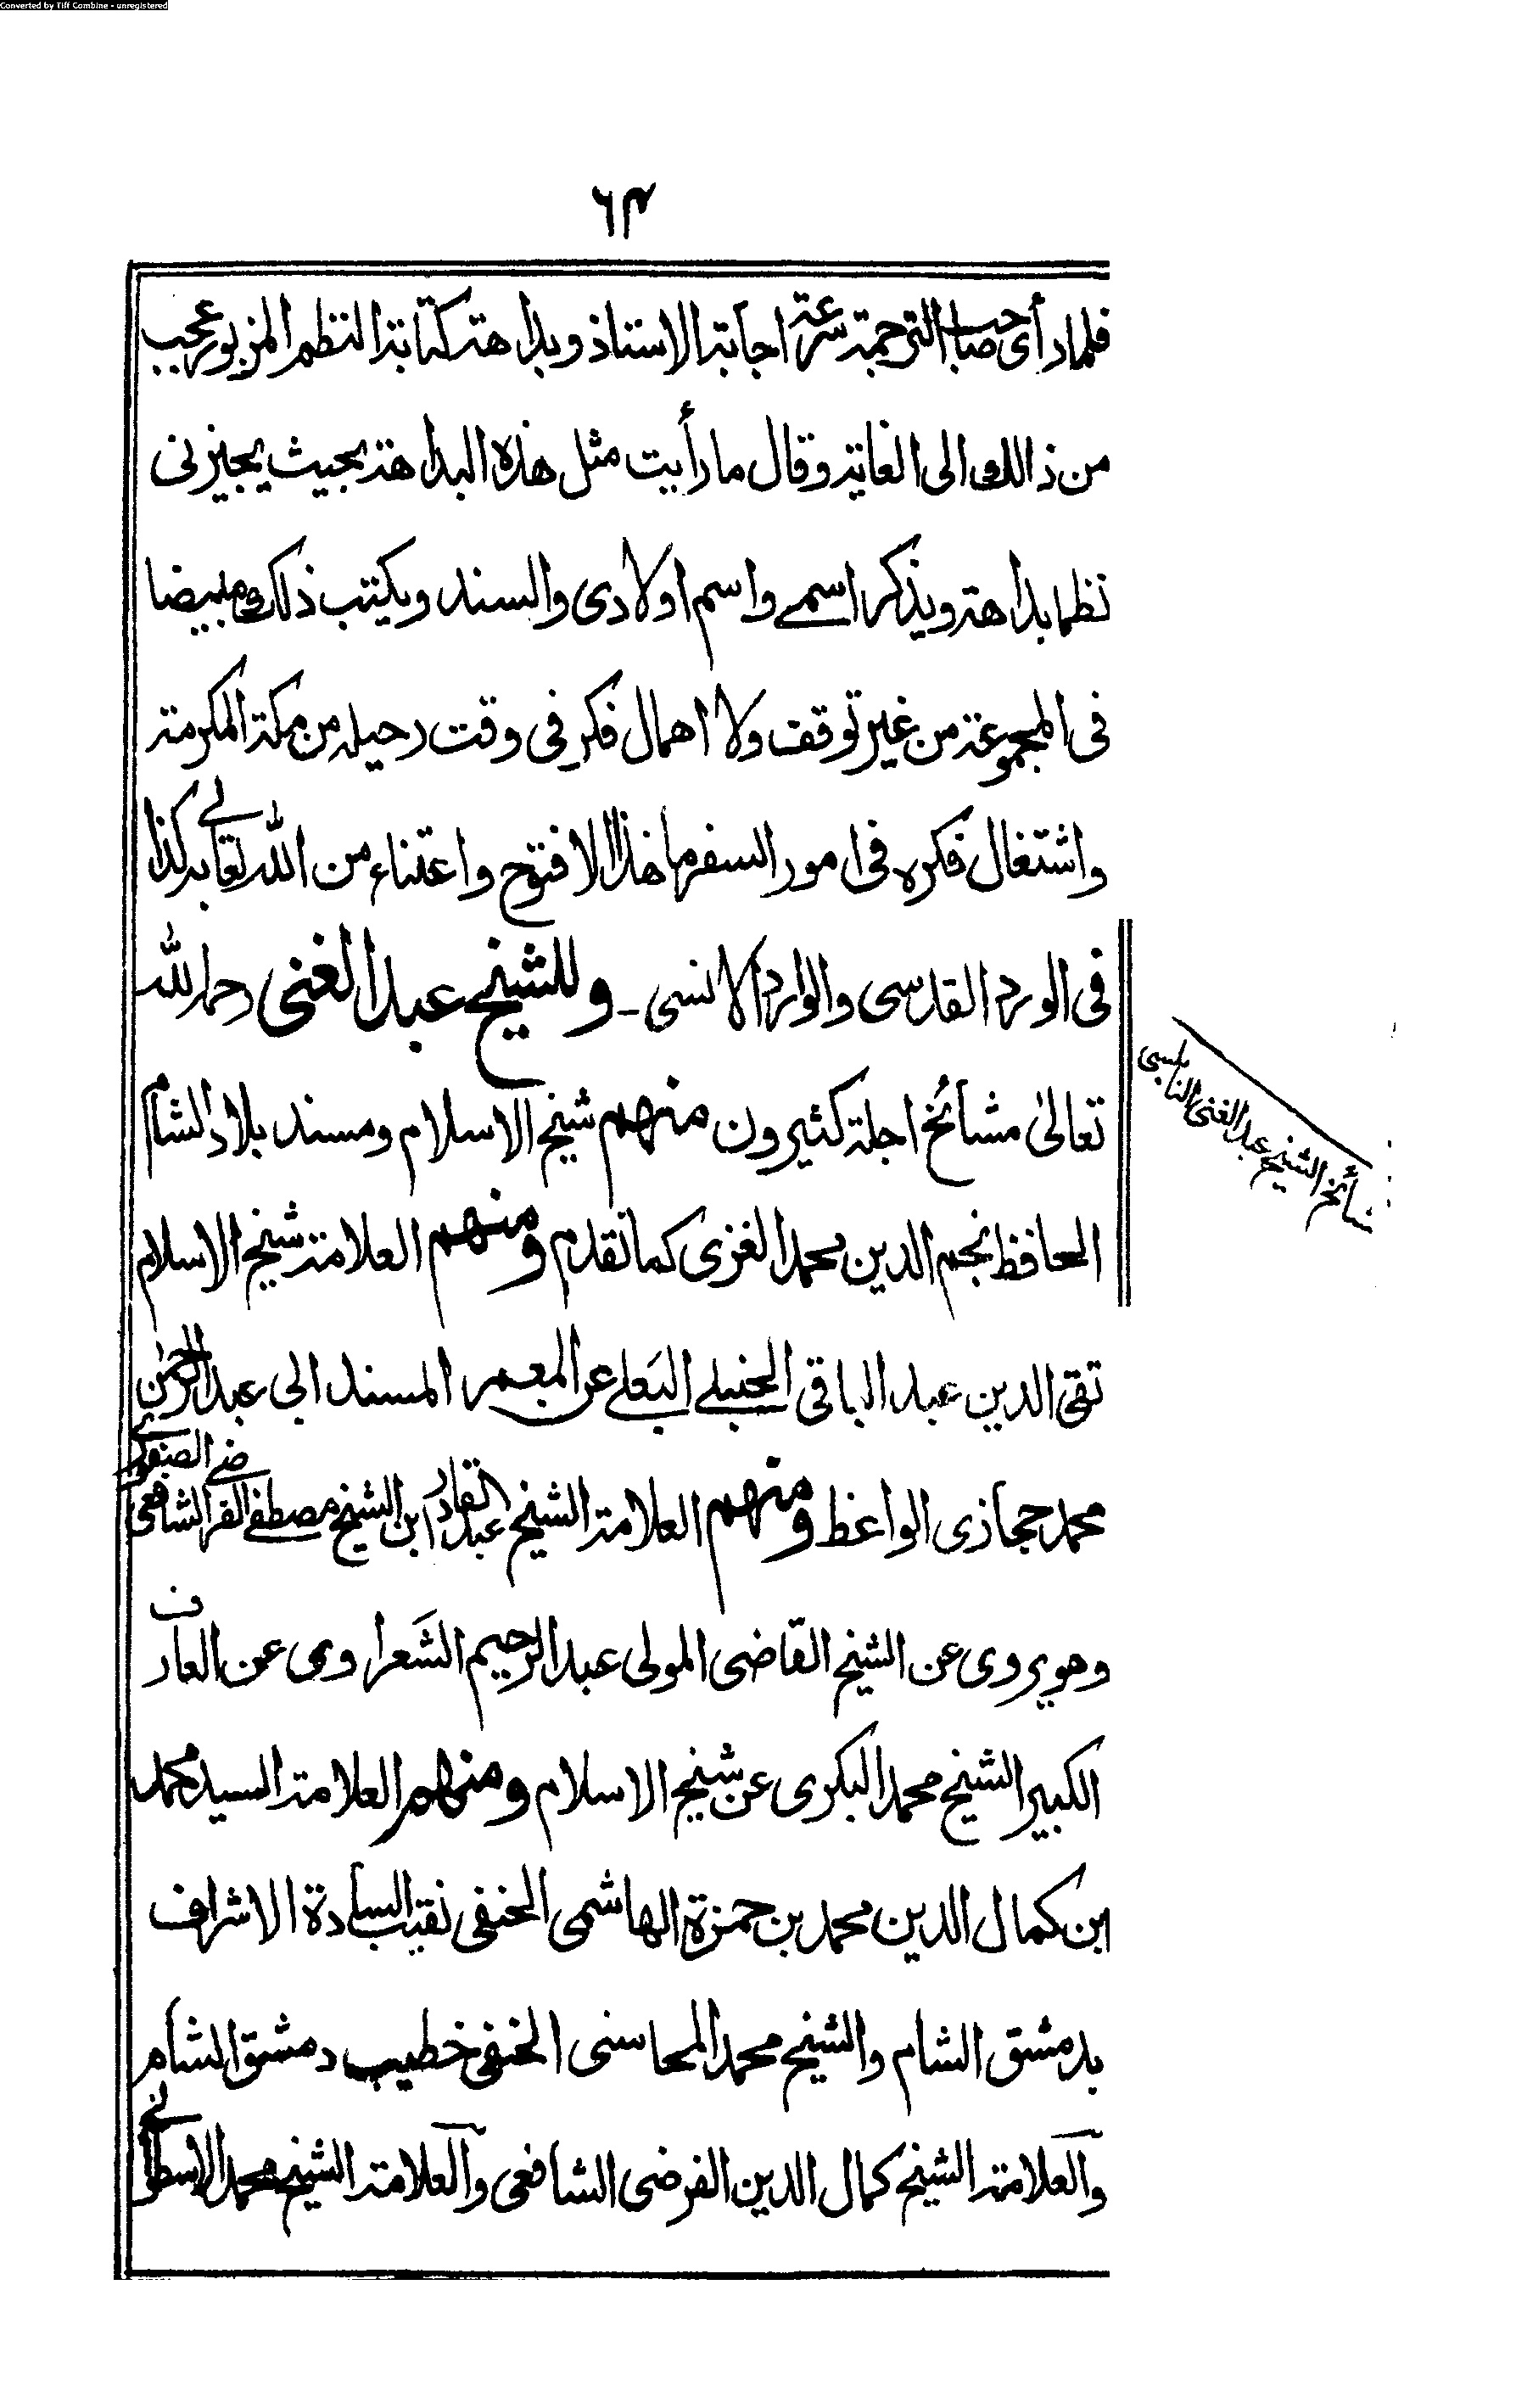 Converted by Tiff Combine - unregistered
٦٣
فلما رأى صاحب الترجمة سرعة اجابة الاستاذ وبداهة كتابة النظم المزبور عجب
من ذالك الى الغاية وقال ما رأيت مثل هذه البداهة بحيث يجيزنى
نظما بداهة ويذكر اسمى واسم اولادى والسند ويكتب ذلك مبيضا
فى المجموعة من غير توقف ولا اهمال فكر فى وقت رحيله من مكة المكرمة
واشتغال فكره فى امور السفر ما هذا الا فتوح واعتناء من الله تعالى به كذا
فى الورد القدسى والوارد الانسى ـ وللشيخ عبد الغنى رحمه الله
تعالىٰ مشائخ اجلة كثيرون منهم شيخ الاسلام ومسند بلاد الشام
الحافظ نجم الدين محمد الغزى كما تقدم ومنهم العلامة شيخ الاسلام
تقى الدين عبد الباقى الحنبلى البَعلى عن المعمر المسند ابى عبد الرحمٰن
محمد حجازى الواعظ ومنهم العلامة الشيخ عبد القادر ابن الشيخ مصطفى الفرضى الصفورى الشافعى
وهو يروى عن الشيخ القاضى المولى عبد الرحيم الشَعراوى عن العارف
الكبير الشيخ محمد البكرى عن شيخ الاسلام ومنهم العلامة السيد محمد
ابن كمال الدين محمد بن حمزة الهاشمى الحنفى نقيب السادة الاشراف
بدمشق الشام والشيخ محمد المحاسنى الحنفى خطيب دمشق الشام
والعلامة الشيخ كمال الدين الفرضى الشافعى والعلامة الشيخ محمد الاسطوانى
مشائخ الشيخ عبد الغنى النابلسى